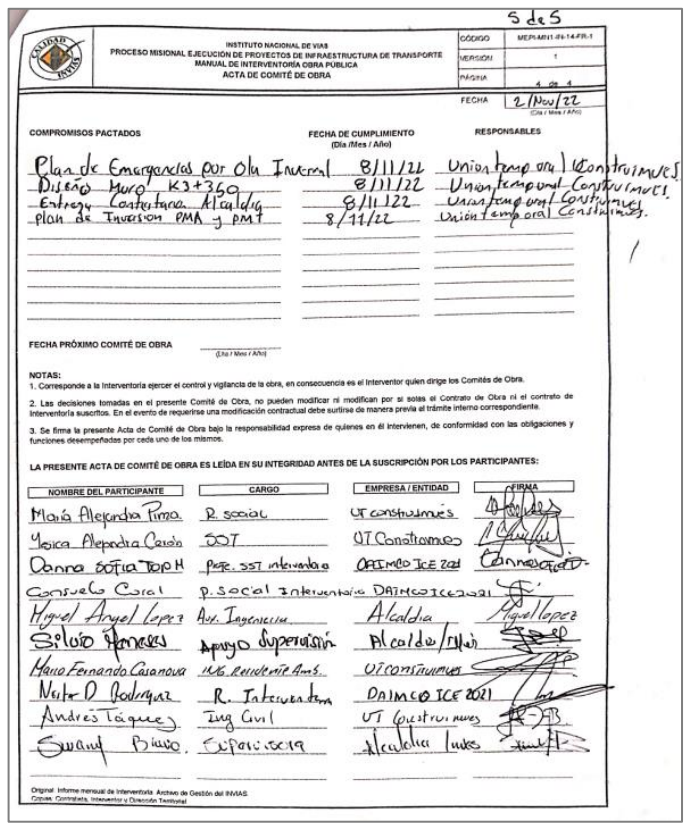 5 de 5
CALIDAD
INVIAS
INSTITUTO NACIONAL DE VIAS
PROCESO MISIONAL EJECUCIÓN DE PROYECTOS DE INFRAESTRUCTURA DE TRANSPORTE
MANUAL DE INTERVENTORÍA OBRA PÚBLICA
ACTA DE COMITÉ DE OBRA
CÓDIGO MEPI-MN1-IN-14-FR-1
VERSIÓN 1
PÁGINA 4 de 4
FECHA 2/Nov/22
(Día / Mes / Año)
COMPROMISOS PACTADOS FECHA DE CUMPLIMIENTO RESPONSABLES
(Día /Mes / Año)
Plan de Emergencias por Ola Invernal 8/11/22 Union temporal Construimues.
Diseño Muro K3+350 8/11/22 Union temporal Construimues.
Entrega Alcaldia 8/11/22 Union temporal Construimues
plan de Inversion PMA y PMT 8/11/22 Union temporal Construimues.
FECHA PRÓXIMO COMITÉ DE OBRA
(Día / Mes / Año)
NOTAS:
1. Corresponde a la Interventoría ejercer el control y vigilancia de la obra, en consecuencia es el Interventor quien dirige los Comités de Obra.
2. Las decisiones tomadas en el presente Comité de Obra, no pueden modificar ni modifican por si solas el Contrato de Obra ni el contrato de
Interventoría suscritos. En el evento de requerirse una modificación contractual debe surtirse de manera previa el trámite interno correspondiente.
3. Se firma la presente Acta de Comité de Obra bajo la responsabilidad expresa de quienes en él intervienen, de conformidad con las obligaciones y
funciones desempeñadas por cada uno de los mismos.
LA PRESENTE ACTA DE COMITÉ DE OBRA ES LEÍDA EN SU INTEGRIDAD ANTES DE LA SUSCRIPCIÓN POR LOS PARTICIPANTES:
NOMBRE DEL PARTICIPANTE CARGO EMPRESA / ENTIDAD FIRMA
María Alejandra R. social UT construimues
Yesica Alejandra SST UT Construimues
Danna Sofia Profe. SST interventoria DAIMCO ICE 2021
Consuelo Coral P. Social Interventoria DAIMCO ICE 2021
Miguel Angel Lopez Aux. Ingenieria Alcaldia Miguel Lopez
Silvio Apoyo Supervisión Alcaldia
Mario Fernando Casanova ING. Residente Amb. UT construimues
Nestor D Rodriguez R. Interventoria DAIMCO ICE 2021
Andrés Ing Civil UT Construimues
Alcaldia
Original: Informe mensual de Interventoría. Archivo de Gestión del INVIAS.
Copias: Contratista, Interventor y Dirección Territorial